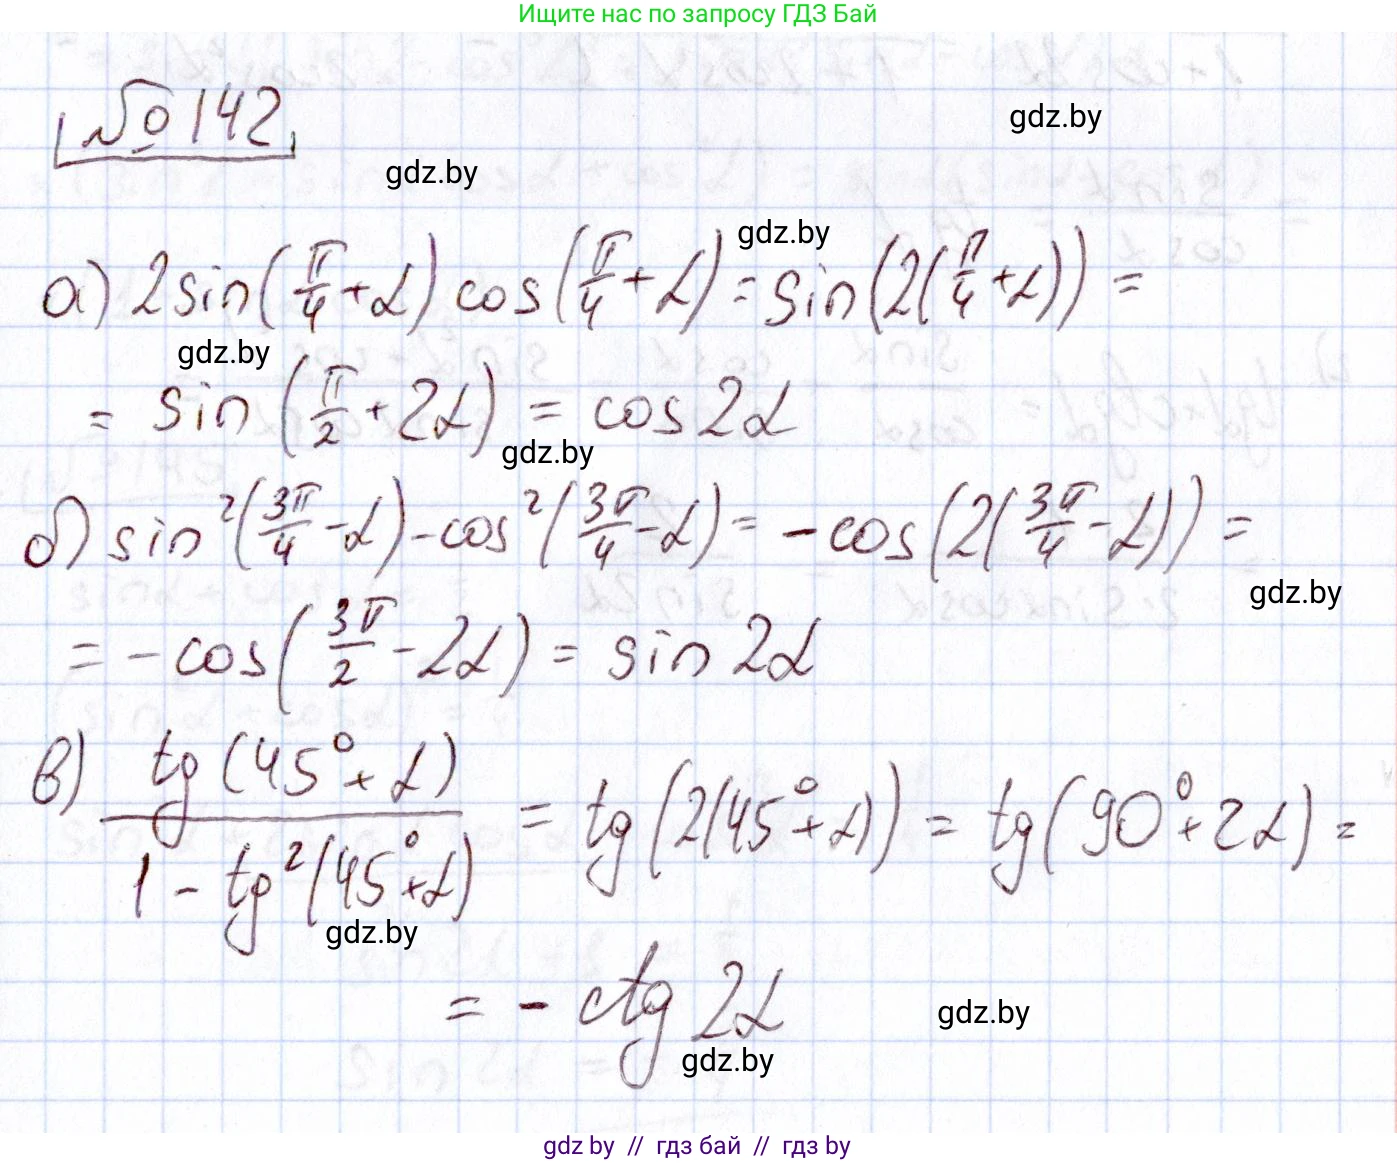 Ищите нас по запросу ГДЗ Бай
№ 142
gdz.by
gdz.by
gdz.by
а) 2sin(π/4 + α) cos(π/4 + α) = sin(2(π/4 + α)) =
gdz.by
= sin(π/2 + 2α) = cos2α
gdz.by
б) sin²(3π/4 - α) - cos²(3π/4 - α) = -cos(2(3π/4 - α)) =
gdz.by
= -cos(3π/2 - 2α) = sin2α
в) tg(45° + α) / 1 - tg²(45° + α) = tg(2(45° + α)) = tg(90° + 2α) =
gdz.by
= - ctg 2α
gdz.by
gdz.by
gdz by // гдз бай // гдз by